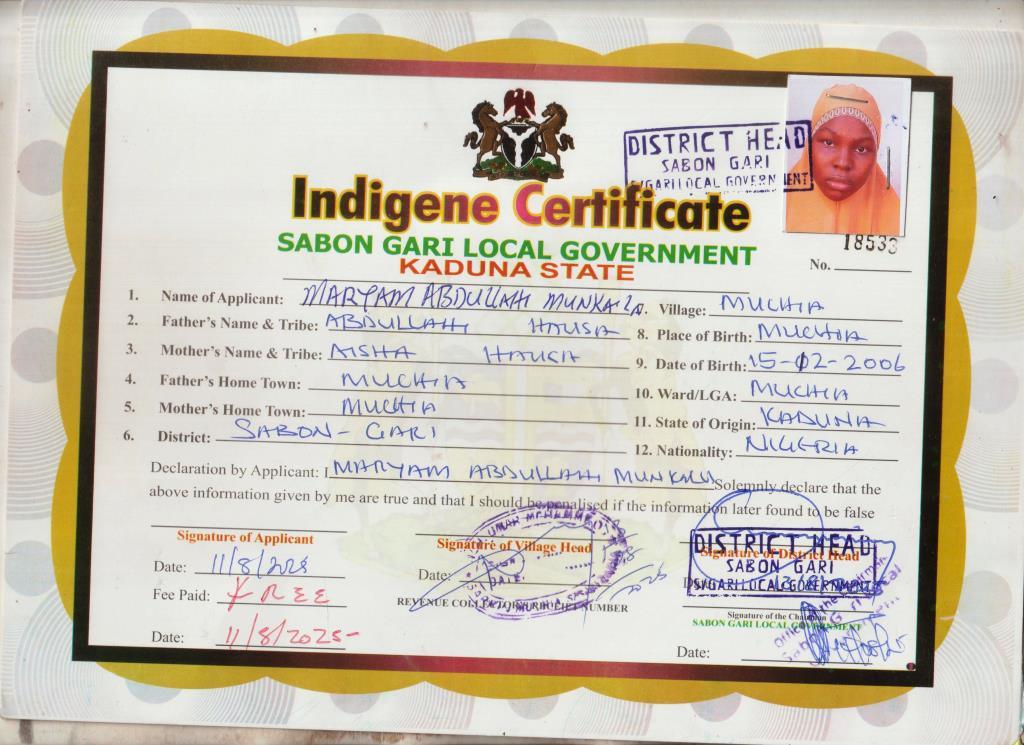 DISTRICT HEAD
SABON GARI
S/GARI LOCAL GOVERNMENT
Indigene Certificate
SABON GARI LOCAL GOVERNMENT
KADUNA STATE
18533
No.
1. Name of Applicant: MARYAM ABDULLAHI MUNKAILA. Village: MUCHIA
2. Father's Name & Tribe: ABDULLAHI HAUSA 8. Place of Birth: MUCHIA
3. Mother's Name & Tribe: AISHA HAUSA 9. Date of Birth: 15-02-2006
4. Father's Home Town: MUCHIA 10. Ward/LGA: MUCHIA
5. Mother's Home Town: MUCHIA 11. State of Origin: KADUNA
6. District: SABON-GARI 12. Nationality: NIGERIA
Declaration by Applicant: I MARYAM ABDULLAHI Solemnly declare that the
above information given by me are true and that I should be penalised if the information later found to be false
Signature of Applicant
Date: 11/8/2025
Fee Paid: FREE
Date: 11/8/2025-
Signature of Village Head
Date:
UMAR
DATE
REVENUE COLLECTOR NUMBER
Signature of District Head
DISTRICT HEAD
SABON GARI
S/GARI LOCAL GOVERNMENT
Signature of the Chairman
SABON GARI LOCAL GOVERNMENT
Office of the Chairman
Date: